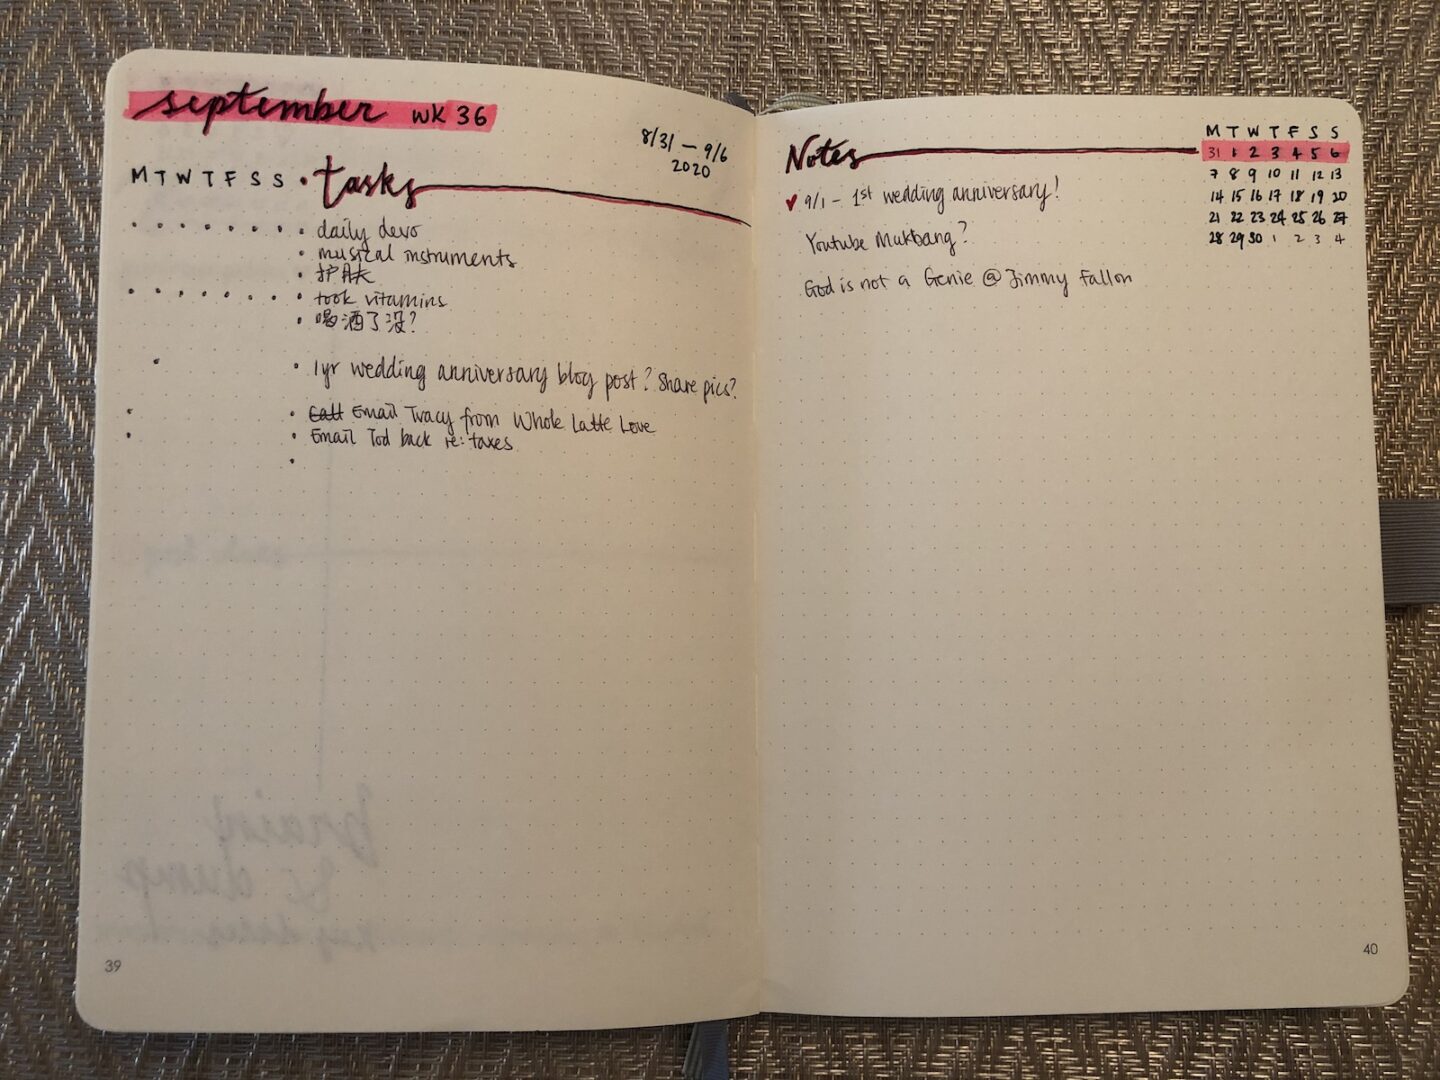 september wk 36
8/31 — 9/6
2020
M T W T F S S • tasks
• daily devo
• musical instruments
• 护肤
• took vitamins
• 喝酒了没?
• 1yr wedding anniversary blog post? Share pics?
• Call Email Tracy from Whole Latte Love
• Email Tod back re: taxes
brain
& dump
key dates
39
Notes
♥ 9/1 - 1st wedding anniversary!
Youtube Mukbang?
God is not a Genie @ Jimmy Fallon
M T W T F S S
31 1 2 3 4 5 6
7 8 9 10 11 12 13
14 15 16 17 18 19 20
21 22 23 24 25 26 27
28 29 30 1 2 3 4
40